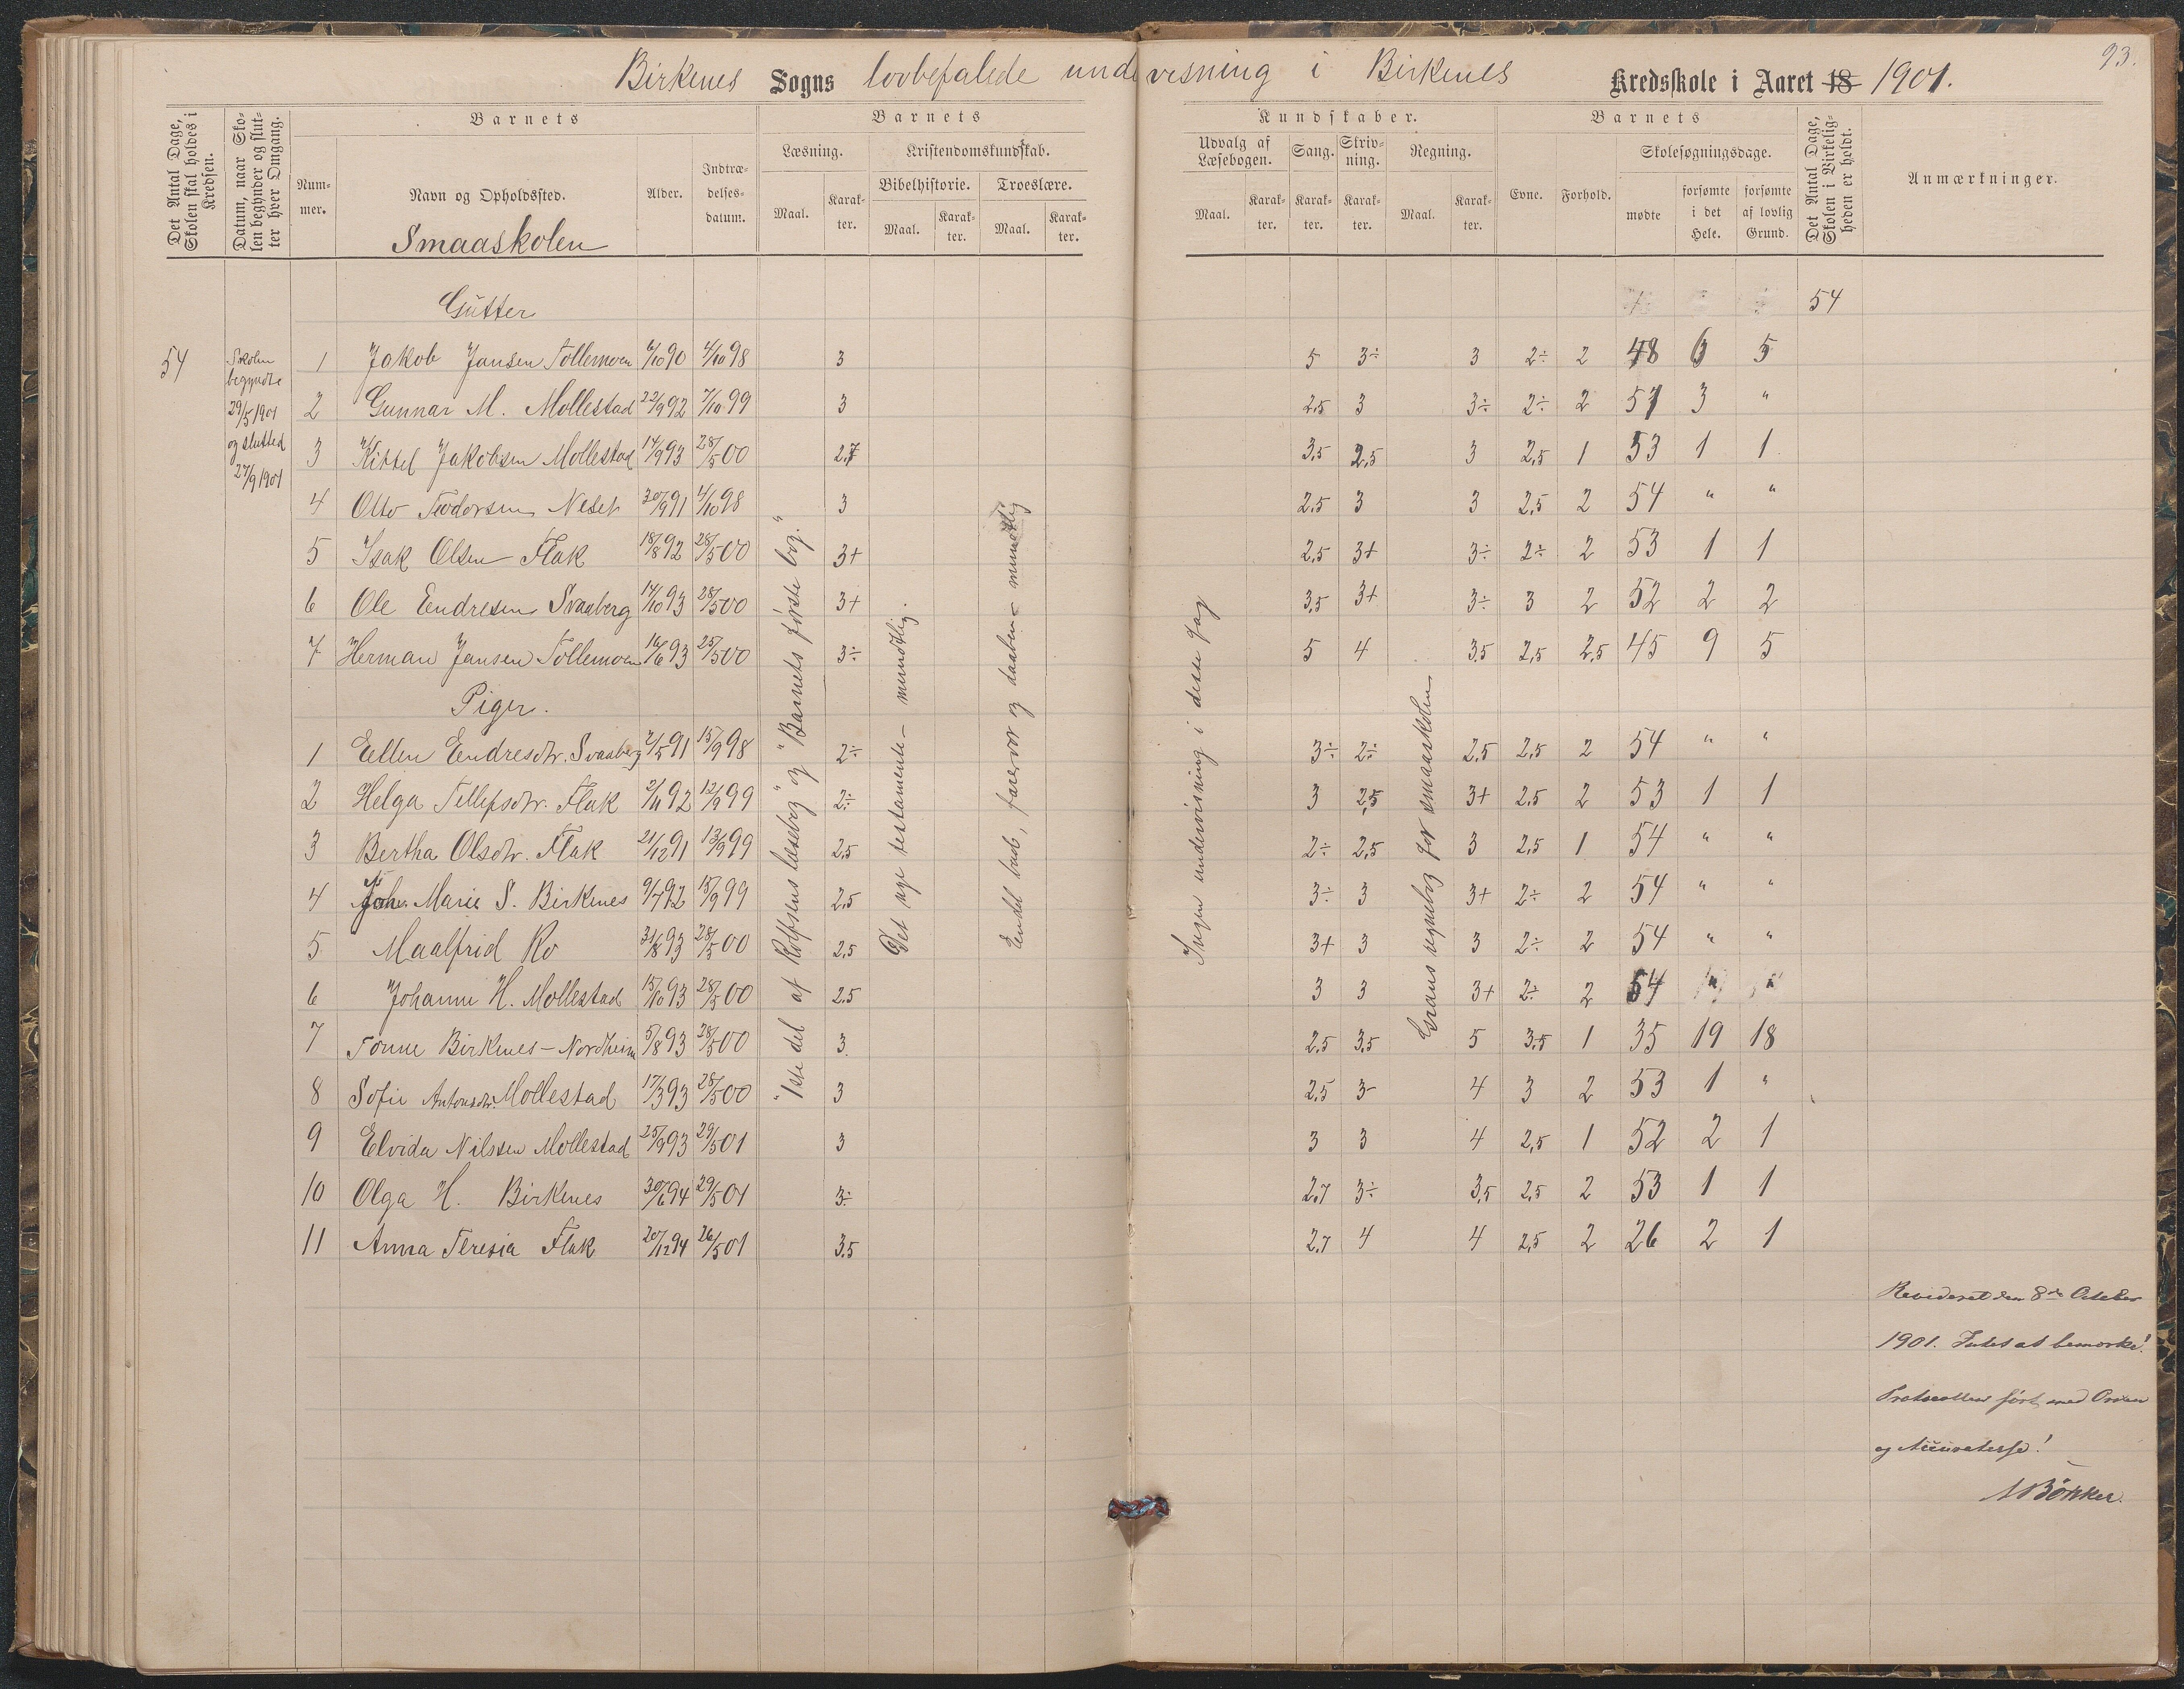 93.
Birkenes Sogns lovbefalede undervisning i Birkenes Kredsskole i Aaret 18 1901.
Det Antal Dage, Skolen skal holdes i Kredsen.
Datum, naar Skolen begynder og slutter hver Omgang.
Barnets
Nummer.
Navn og Opholdssted.
Smaaskolen
Alder.
Indtrædelsesdatum.
Barnets
Læsning.
Maal.
Karakter.
Kristendomskundskab.
Bibelhistorie.
Maal.
Karakter.
Troeslære.
Maal.
Karakter.
Kundskaber.
Udvalg af Læsebogen.
Maal.
Karakter.
Sang.
Karakter.
Skrivning.
Karakter.
Regning.
Maal.
Karakter.
Barnets
Evne.
Forhold.
Skolesøgningsdage.
mødte
forsømte i det Hele.
forsømte af lovlig Grund.
Det Antal Dage, Skolen i Virkeligheden er holdt.
Anmærkninger.
Gutter
54
54
Skolen
begyndte
29/5 1901
og slutted
27/9 1901
1 Jakob Jansen Tollemoen 6/10 90 4/10 98 3 5 3÷ 3 2÷ 2 48 6 5
2 Gunnar M. Mollestad 22/9 92 7/10 99 3 2.5 3 3÷ 2÷ 2 51 3 "
3 Kittel Jakobsen Mollestad 14/9 93 28/5 00 2.7 3.5 2,5 3 2,5 1 53 1 1
4 Otto Teodorsen Neset 30/9 91 4/10 98 3 2.5 3 3 2,5 2 54 " "
5 Isak Olsen Flak 18/8 92 28/5 00 3+ 2,5 3+ 3÷ 2÷ 2 53 1 1
6 Ole Endresen Svaaberg 14/10 93 28/5 00 3+ 3,5 3+ 3÷ 3 2 52 2 2
7 Herman Jansen Tollemoen 16/6 93 25/5 00 3÷ 5 4 3.5 2,5 2,5 45 9 5
Piger.
1 Ellen Endresdtr. Svaaberg 2/5 91 15/9 98 2÷ 3÷ 2÷ 2,5 2,5 2 54 " "
2 Helga Tellefsdtr. Flak 2/11 92 12/9 99 2÷ 3 2,5 3+ 2.5 2 53 1 1
3 Bertha Olsdtr. Flak 21/12 91 13/9 99 2,5 2÷ 2,5 3 2,5 1 54 " "
4 Joh. Marie S. Birkenes 9/7 92 15/9 99 2,5 3÷ 3 3+ 2÷ 2 54 " "
5 Maalfrid Ro 31/8 93 28/5 00 2,5 3+ 3 3 2÷ 2 54 " "
6 Johanne H. Mollestad 15/10 93 28/5 00 2.5 3 3 3+ 2÷ 2 54 " "
7 Tonne Birkenes - Nordheim 5/8 93 28/5 00 3. 2.5 3,5 5 3.5 1 35 19 18
8 Sofie Antonsdtr. Mollestad 17/3 93 28/5 00 3 2.5 3- 4 3 2 53 1 "
9 Elvida Nilssen Mollestad 25/9 93 29/5 01 3 3 3 4 2,5 1 52 2 1
10 Olga H. Birkenes 30/6 94 29/5 01 3÷ 2.7 3÷ 3,5 2,5 2 53 1 1
11 Anna Teresia Flak 20/12 94 26/5 01 3.5 2.7 4 4 2,5 2 26 2 1
"1ste del af Rolfsens læsebog" og "Barnets første bog."
Det nye testamente - mundtlig.
Endel bud, fadervor og daaben - mundtlig
Ingen undervisning i disse fag
Grans regnebog for smaaskolen
Revideret den 8de October
1901. Intet at bemærke!
Protocollen ført med Orden
og